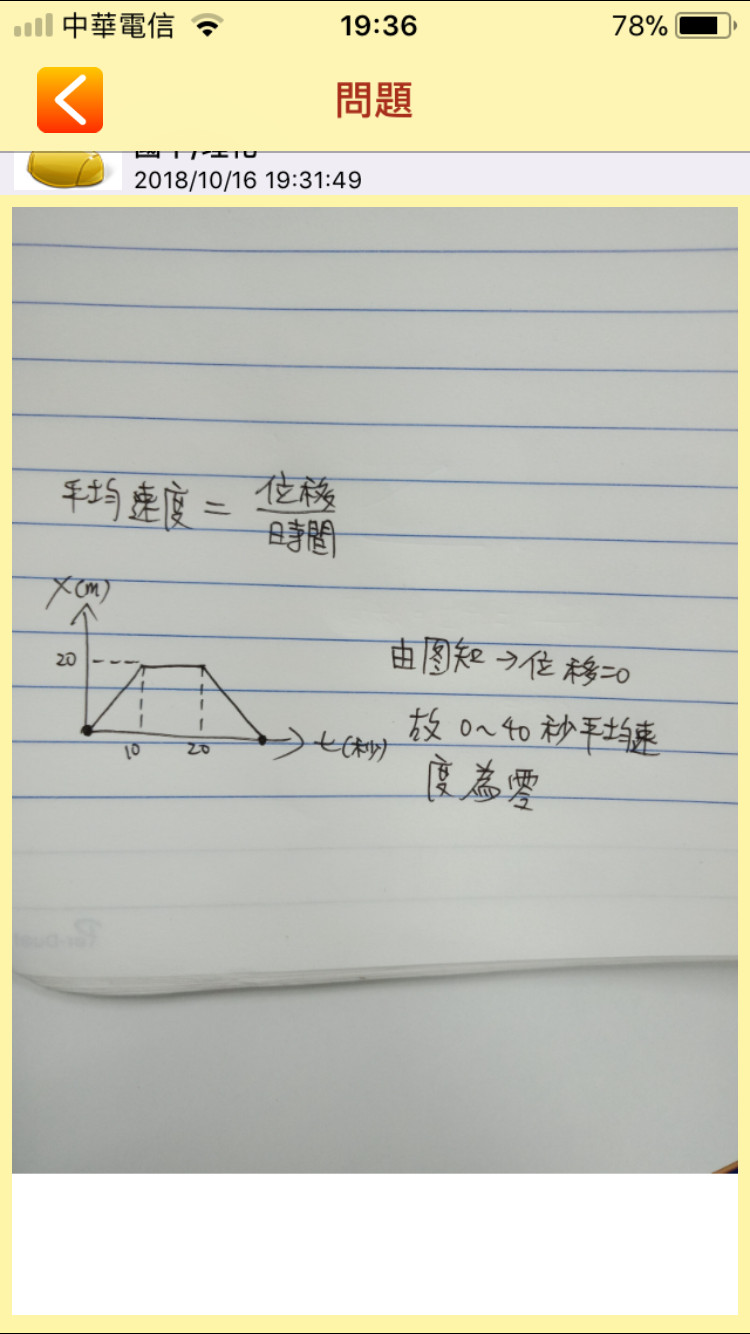 中華電信
19:36
78%
問題
2018/10/16 19:31:49
平均速度 = 位移
時間
X(m)
20
10
20
t(秒)
由图知→位移=0
故 0~40 秒平均速
度為零